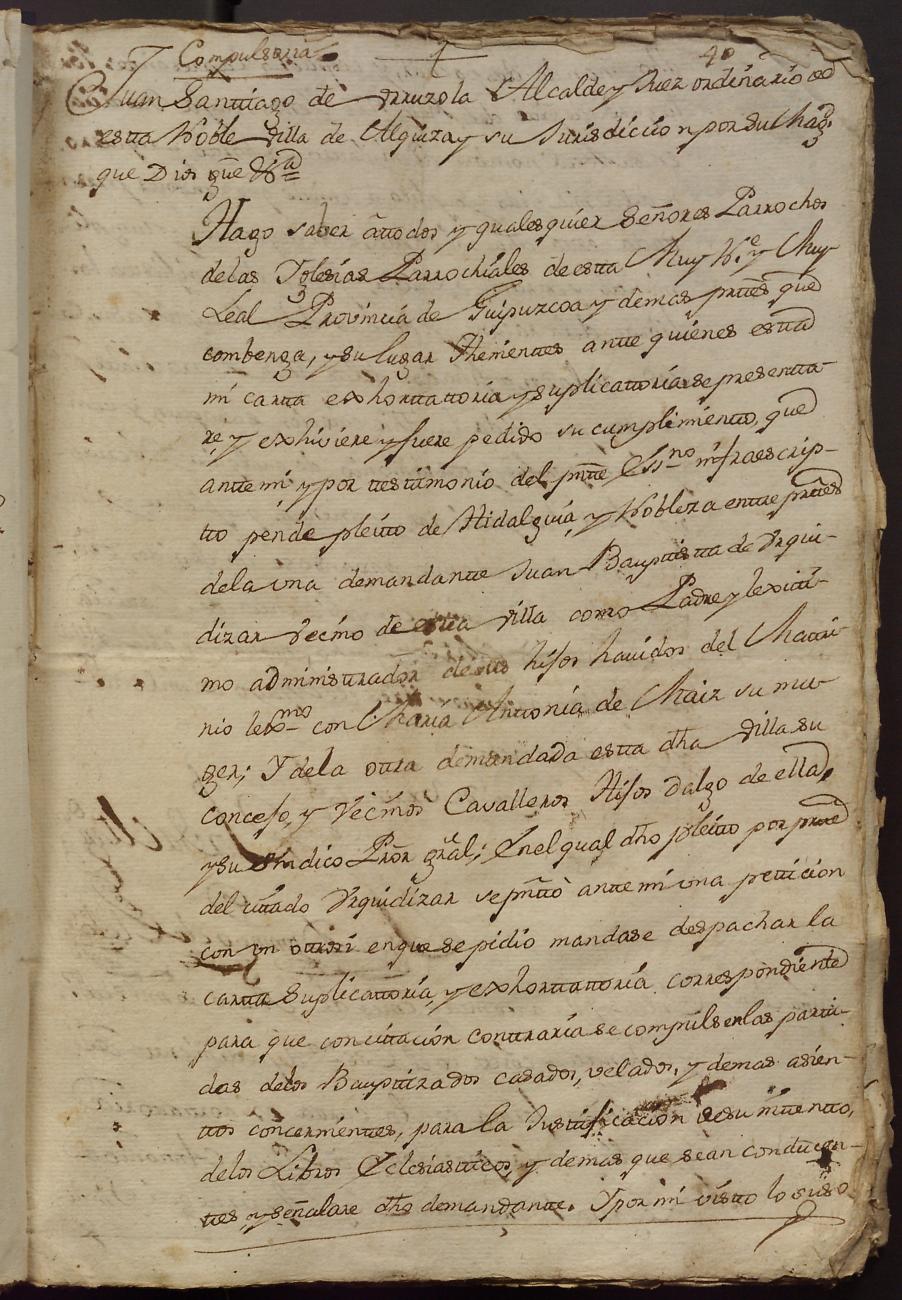 Compulsoria
40
Juan Santtiago de Urruzola Alcalde y Juez ordinario de
estta Noble Villa de Alquiza y su Jurisdiccion por su Magd
que Dios gue &a
Hago saver a ttodos y qualesquier Señores Parrochos
delas Iglesias Parrochiales de estta Muy Ne y Muy
Leal Provincia de Guipuzcoa y demas prtes que
combenga, y su lugar Thenienttes antte quienes estta
mi cartta exhorttattoria y suplicattoria se presentta-
re, y exhiviere y fuere pedido su cumplimientto, que
antte mi y por ttesttimonio del prte Essno infraescrip-
tto pende pleitto de Hidalguia, y Nobleza enttre prtes
dela una demandantte Juan Bapttistta de Urqui-
dizar Vecino de estta Villa como Padre y lexitti-
mo administtrador de sus hijos havidos del Mattri-
nio lexmo con Maria Anttonia de Maiz su mu-
ger; Y dela ottra demandada estta dha Villa su
Concejo, y Vecinos Cavalleros Hijos dalgo de ella,
y su Sindico Pror gral; En el qual dho pleitto por partte
del cittado Urquidizar se prnttò antte mi una petticion
con un ottrosi en que se pidio mandase despachar la
cartta Suplicattoria, y exhorttattoria correspondientte
para que con cittacion conttraria se compulsen las partti-
das delos Bapttizados casados, velados, y demas asien-
ttos concernienttes, para la Justtificacion de su intentto,
delos Libros Eclesiastticos, y demas que sean conducen-
ttes, y señalare dho demandantte. Y por mi vistto lo suso